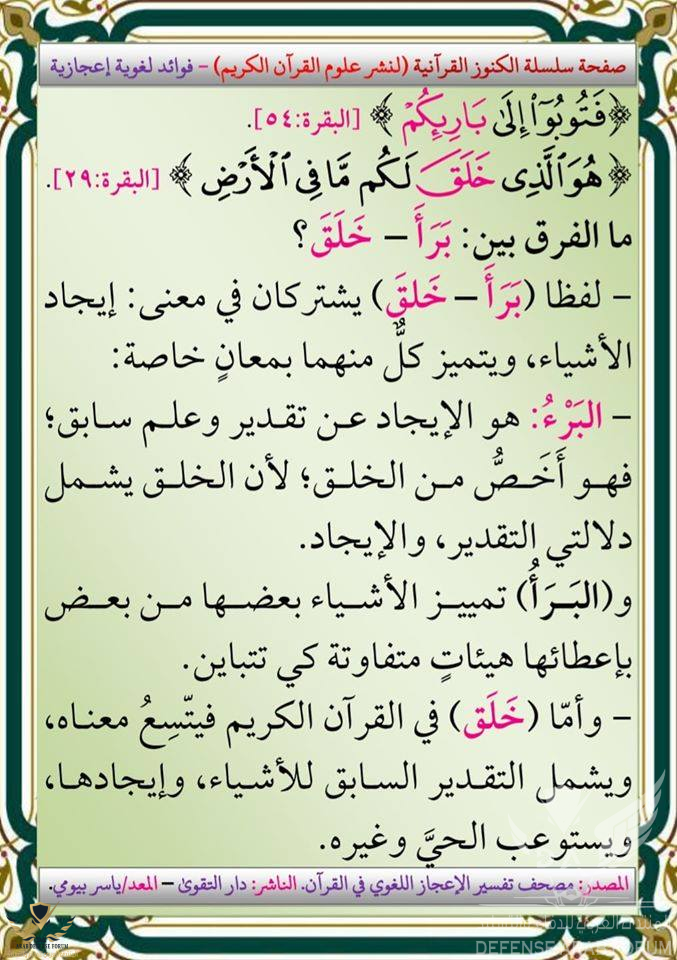 صفحة سلسلة الكنوز القرآنية (لنشر علوم القرآن الكريم) – فوائد لغوية إعجازية
﴿فَتُوبُوٓاْ إِلَىٰ بَارِئِكُمۡ﴾ [البقرة:٥٤].
﴿هُوَ ٱلَّذِى خَلَقَ لَكُم مَّا فِى ٱلۡأَرۡضِ﴾ [البقرة:٢٩].
ما الفرق بين: بَرَأَ – خَلَقَ؟
– لفظا (بَرَأَ – خَلقَ) يشتركان في معنى: إيجاد
الأشياء، ويتميز كلٌّ منهما بمعانٍ خاصة:
– البَرْءُ: هو الإيجاد عن تقدير وعلم سابق؛
فهو أَخَصُّ من الخلق؛ لأن الخلق يشمل
دلالتي التقدير، والإيجاد.
و(البَرَأُ) تمييز الأشياء بعضها من بعض
بإعطائها هيئاتٍ متفاوتة كي تتباين.
– وأمّا (خَلَق) في القرآن الكريم فيتّسِعُ معناه،
ويشمل التقدير السابق للأشياء، وإيجادها،
ويستوعب الحيَّ وغيره.
المصدر: مصحف تفسير الإعجاز اللغوي في القرآن. الناشر: دار التقوىٰ – المعد/ياسر بيومي.
ARAB DEFENSE FORUM